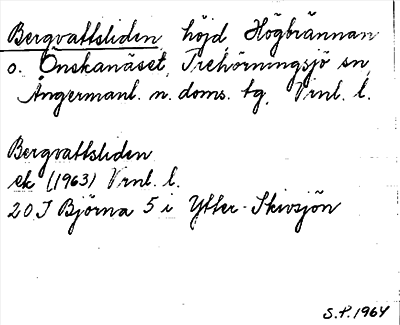 Bergvattsliden höjd Högbrännan
o. Önskanäset, Trehörningsjö sn,
Ångermanl. n. doms. tg, Vrnl. l.
Bergvattsliden
ek (1963) Vrnl. l.
20 J Björna 5 i Ytter-Skivsjön
S.P. 1964